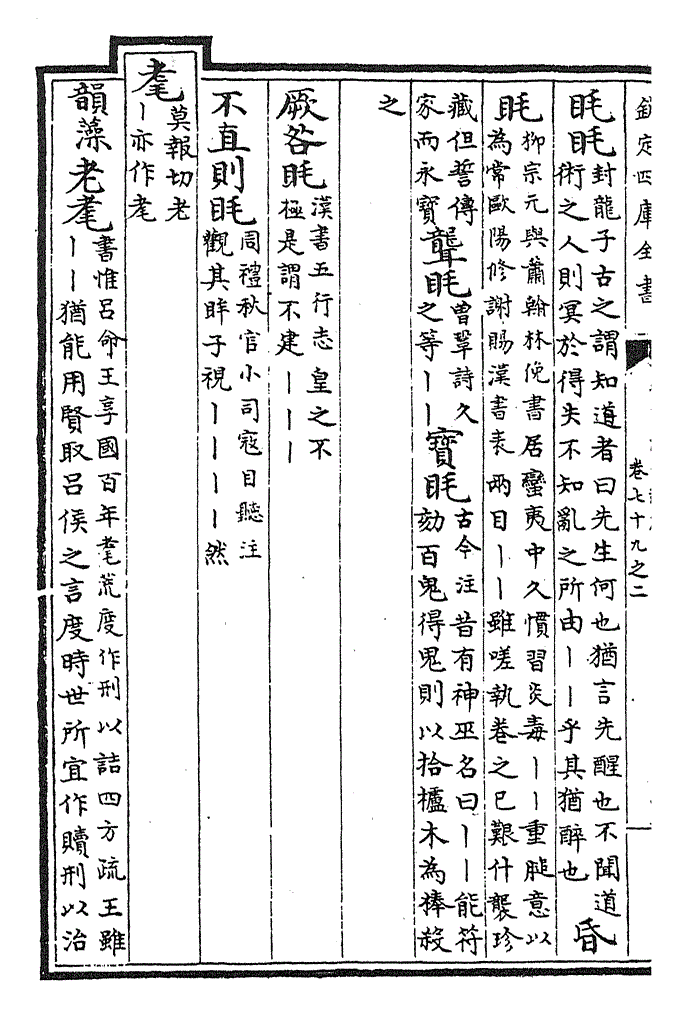 欽定四庫全書
卷七十九之二
眊眊封龍子古之謂知道者曰先生何也猶言先醒也不聞道
術之人則冥於得失不知亂之所由丨丨乎其猶醉也昏
眊柳宗元與蕭翰林俛書居蠻夷中久慣習炎毒丨丨重膇意以
為常歐陽修謝賜漢書表兩目丨丨雖嗟執卷之已艱什襲珍
藏但誓傳
家而永寶聾眊曾鞏詩久
之等丨丨寳眊古今注昔有神巫名曰丨丨能符
劾百鬼得鬼則以拾櫨木為捧殺
之
厥咎眊漢書五行志皇之不
極是謂不建丨丨丨
不直則眊周禮秋官小司寇目聽注
觀其眸子視丨丨丨丨然
耄莫報切老
丨亦作耄
韻藻老耄書惟呂命王享國百年耄荒度作刑以詰四方疏王雖
丨丨猶能用賢取呂侯之言度時世所宜作贖刑以治